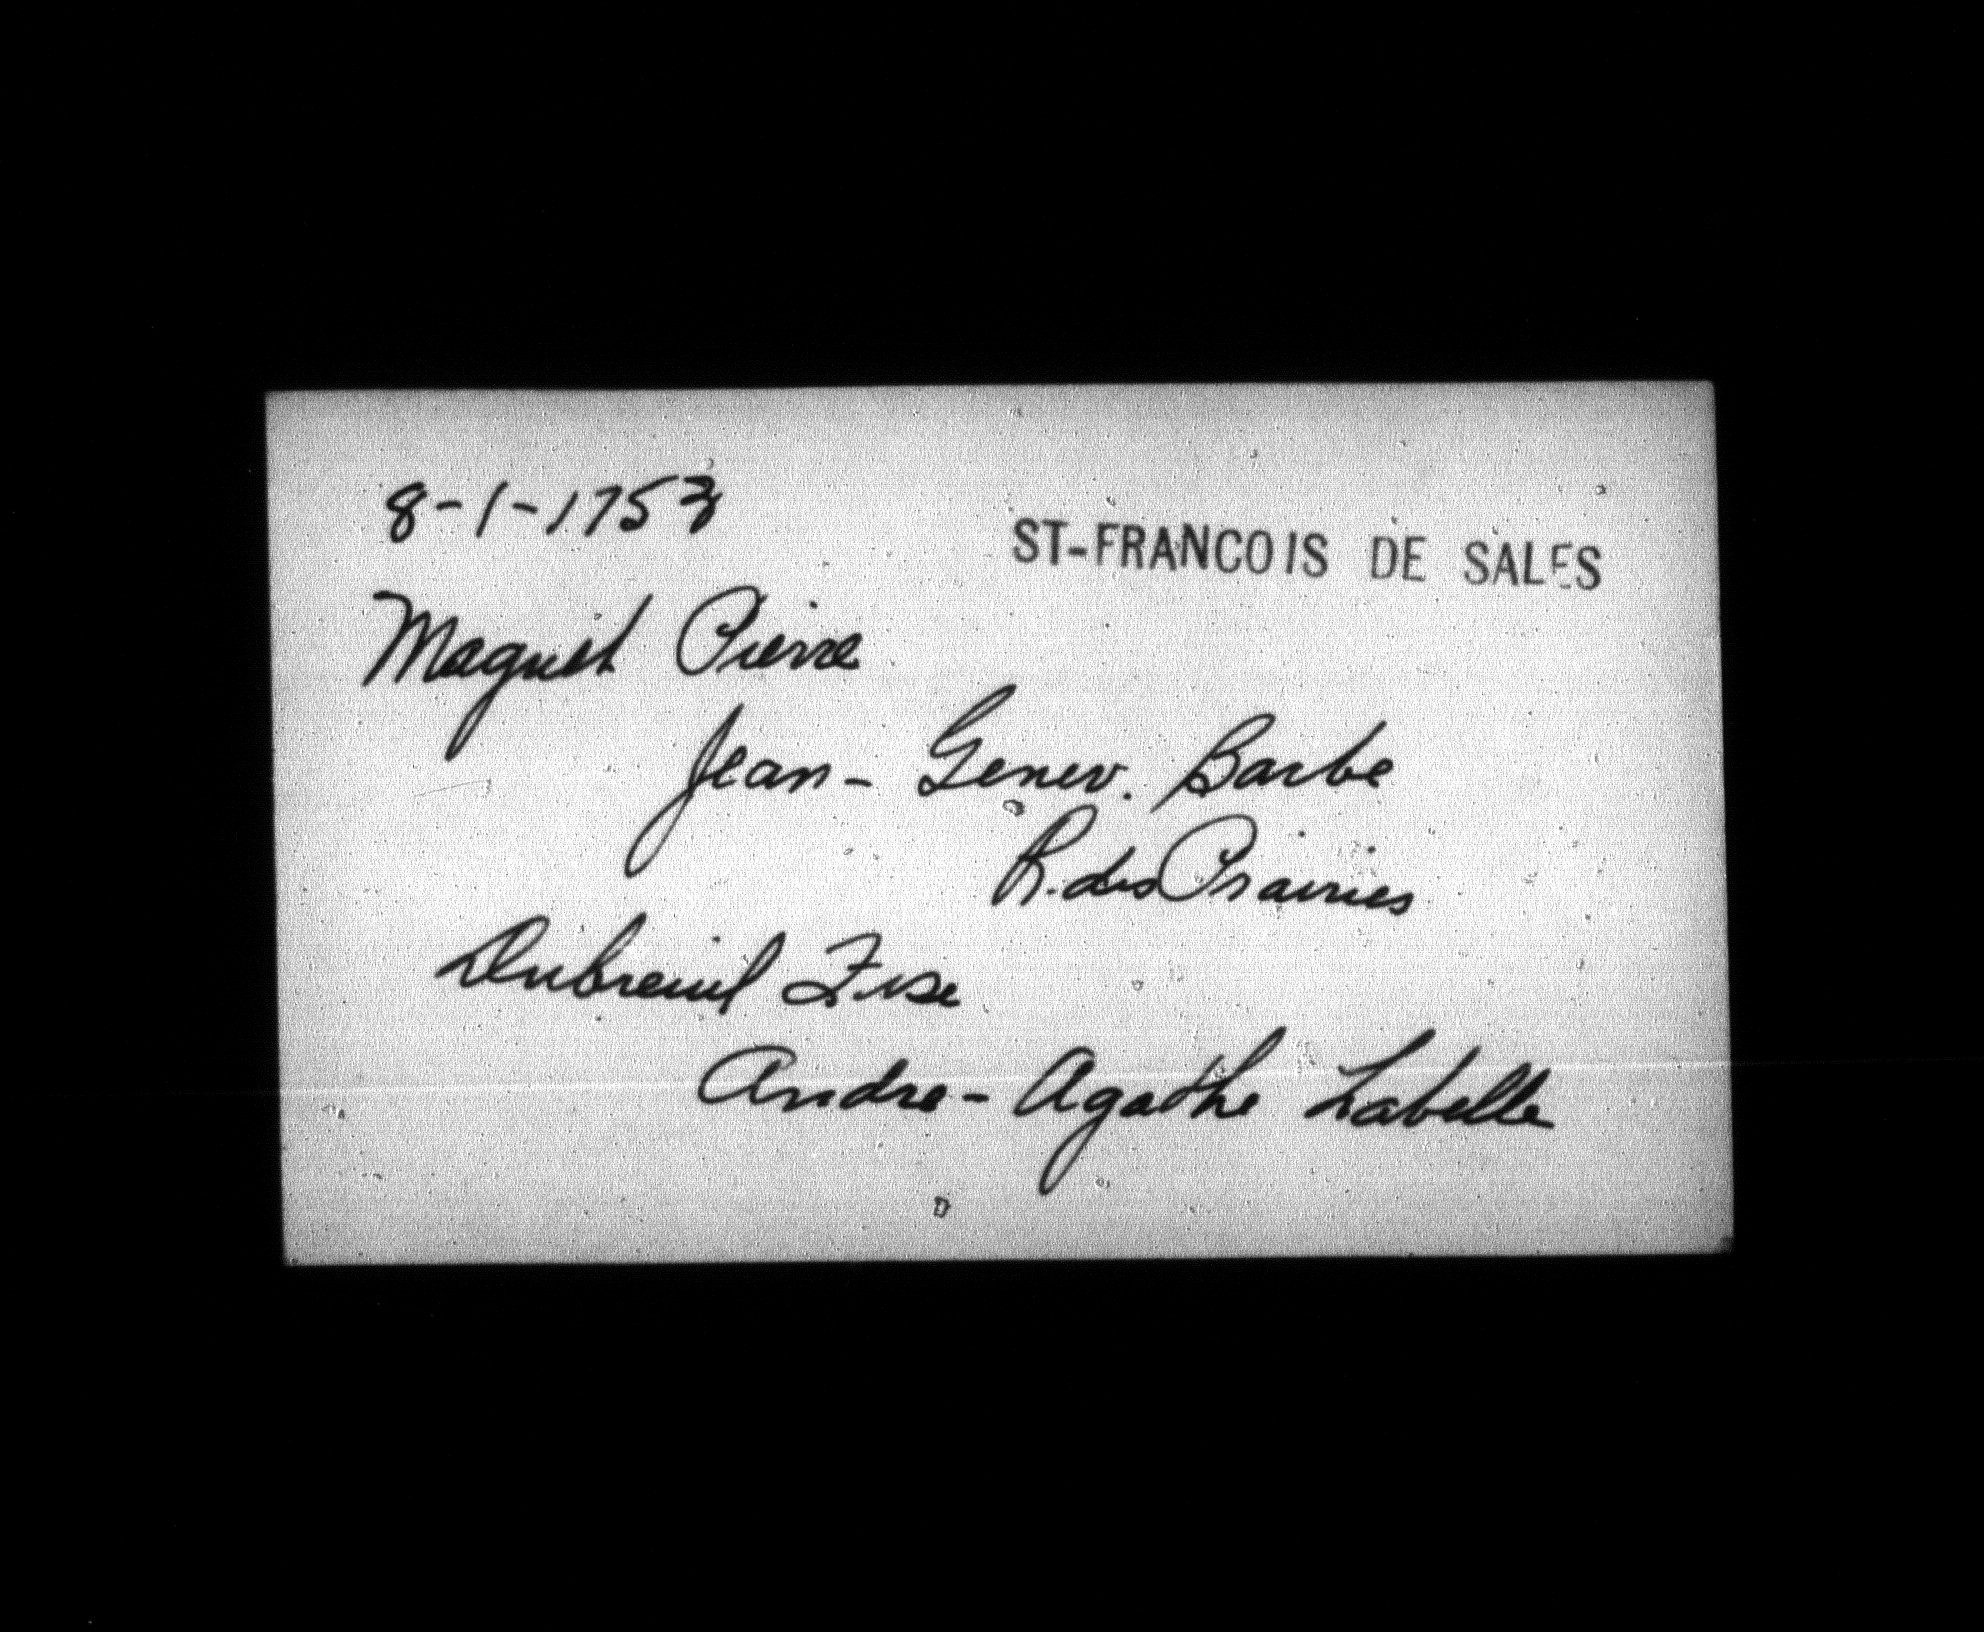 8-1-1753
ST-FRANCOIS DE SALES
Maguet Pierre
Jean- Genev. Barbe
R. des Prairies
Dubreuil Fse
Andre- Agathe Labelle